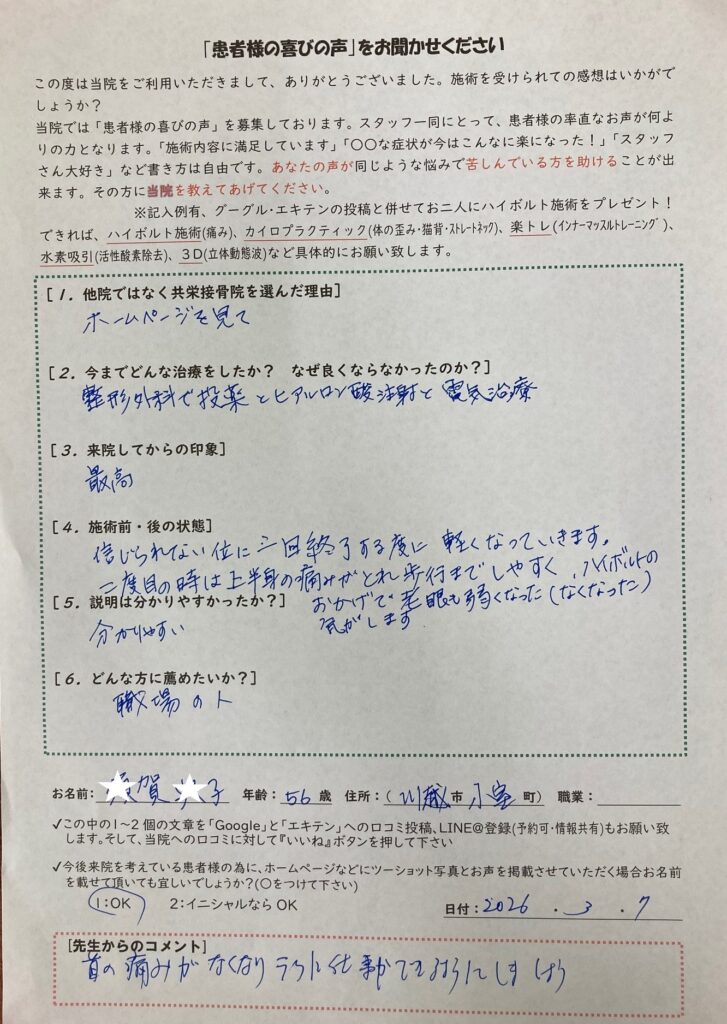 「患者様の喜びの声」をお聞かせください
この度は当院をご利用いただきまして、ありがとうございました。施術を受けられての感想はいかがで
しょうか？
当院では「患者様の喜びの声」を募集しております。スタッフ一同にとって、患者様の率直なお声が何よ
りの力となります。「施術内容に満足しています」「〇〇な症状が今はこんなに楽になった！」「スタッフ
さん大好き」など書き方は自由です。あなたの声が同じような悩みで苦しんでいる方を助けることが出
来ます。その方に当院を教えてあげてください。
※記入例有、グーグル・エキテンの投稿と併せてお二人にハイボルト施術をプレゼント！
できれば、ハイボルト施術(痛み)、カイロプラクティック(体の歪み・猫背・ストレートネック)、楽トレ(インナーマッスルトレーニング)、
水素吸引(活性酸素除去)、３D(立体動態波)など具体的にお願い致します。
[１．他院ではなく共栄接骨院を選んだ理由]
ホームページを見て
[２．今までどんな治療をしたか？　なぜ良くならなかったのか？]
整形外科で投薬とヒアルロン酸注射と電気治療
[３．来院してからの印象]
最高
[４．施術前・後の状態]
信じられない位に一回終了する度に軽くなっていきます。
二度目の時は上半身の痛みがとれ歩行までしやすく、ハイボルトの
おかげで老眼も弱くなった(なくなった)
気がします
[５．説明は分かりやすかったか？]
分かりやすい
[６．どんな方に薦めたいか？]
職場の人
お名前：賀 子　年齢：56歳　住所：（川越市 小室 町）　職業：
✓この中の１～２個の文章を「Google」と「エキテン」への口コミ投稿、LINE@登録(予約可・情報共有)もお願い致
します。そして、当院への口コミに対して『いいね』ボタンを押して下さい
✓今後来院を考えている患者様の為に、ホームページなどにツーショット写真とお声を掲載させていただく場合お名前
を載せて頂いても宜しいでしょうか？(〇をつけて下さい)
１：OK　２：イニシャルなら OK　日付：2026．3．7
[先生からのコメント]
首の痛みがなくなりラクに仕事ができるようにしましょう